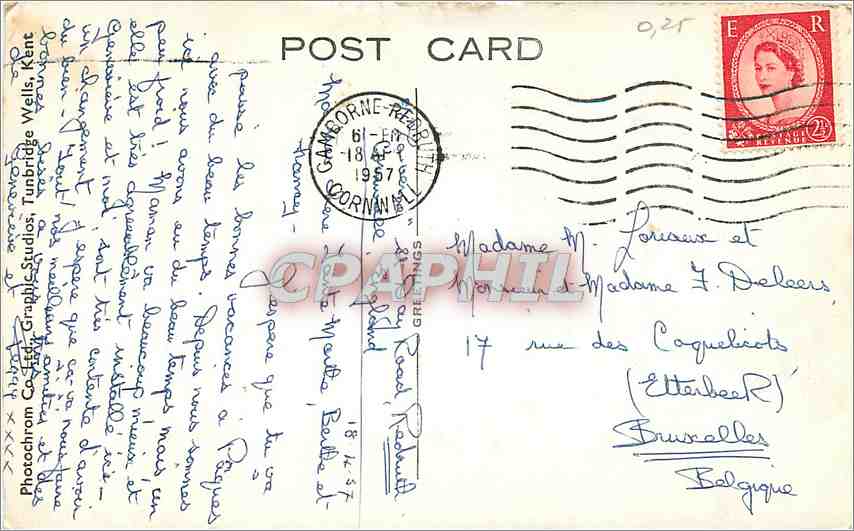 POST CARD
0,25
E R
2½
POSTAGE
REVENUE
CAMBORNE-REDRUTH
18 AP
1957
CORNWALL
GREETINGS
Photochrom Co. Ltd., Graphic Studios, Tunbridge Wells, Kent
CPAPHIL
Road, Redruth
England
18.4.57
Sainte Marthe, Berthe et
Nancy -
J'espère que tu as
passé les bonnes vacances à Pâques
avec du beau temps. Depuis nous sommes
ici nous avons eu du beau temps mais un
peu froid! Maman va beaucoup mieux et
elle est très agréablement installée ici -
Geneviève et moi, sont très contente d'avoir
un changement. J'espère que ça va nous faire
du bien - Tout nos meilleurs amitiés et des
bonnes bises à vous
de Geneviève et Peggy xxxx
Madame M. Loriaux et
Monsieur et Madame F. Deleers,
17 rue des Coquelicots
(Etterbeek)
Bruxelles
Belgique